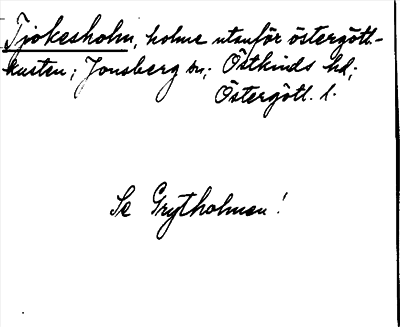 Tjokesholm, holme utanför östergötl.-
kusten; Jonsberg sn; Östkinds hd;
Östergötl. l.
Se Grytholmen!